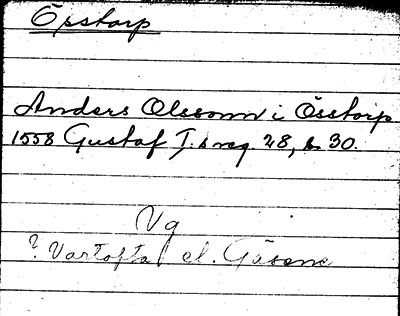 Öpstorp
Anders Olssonn i Össtorp
1558 Gustaf I.s reg. 28, s. 30.
Vg
? Vartofta el. Gäsene